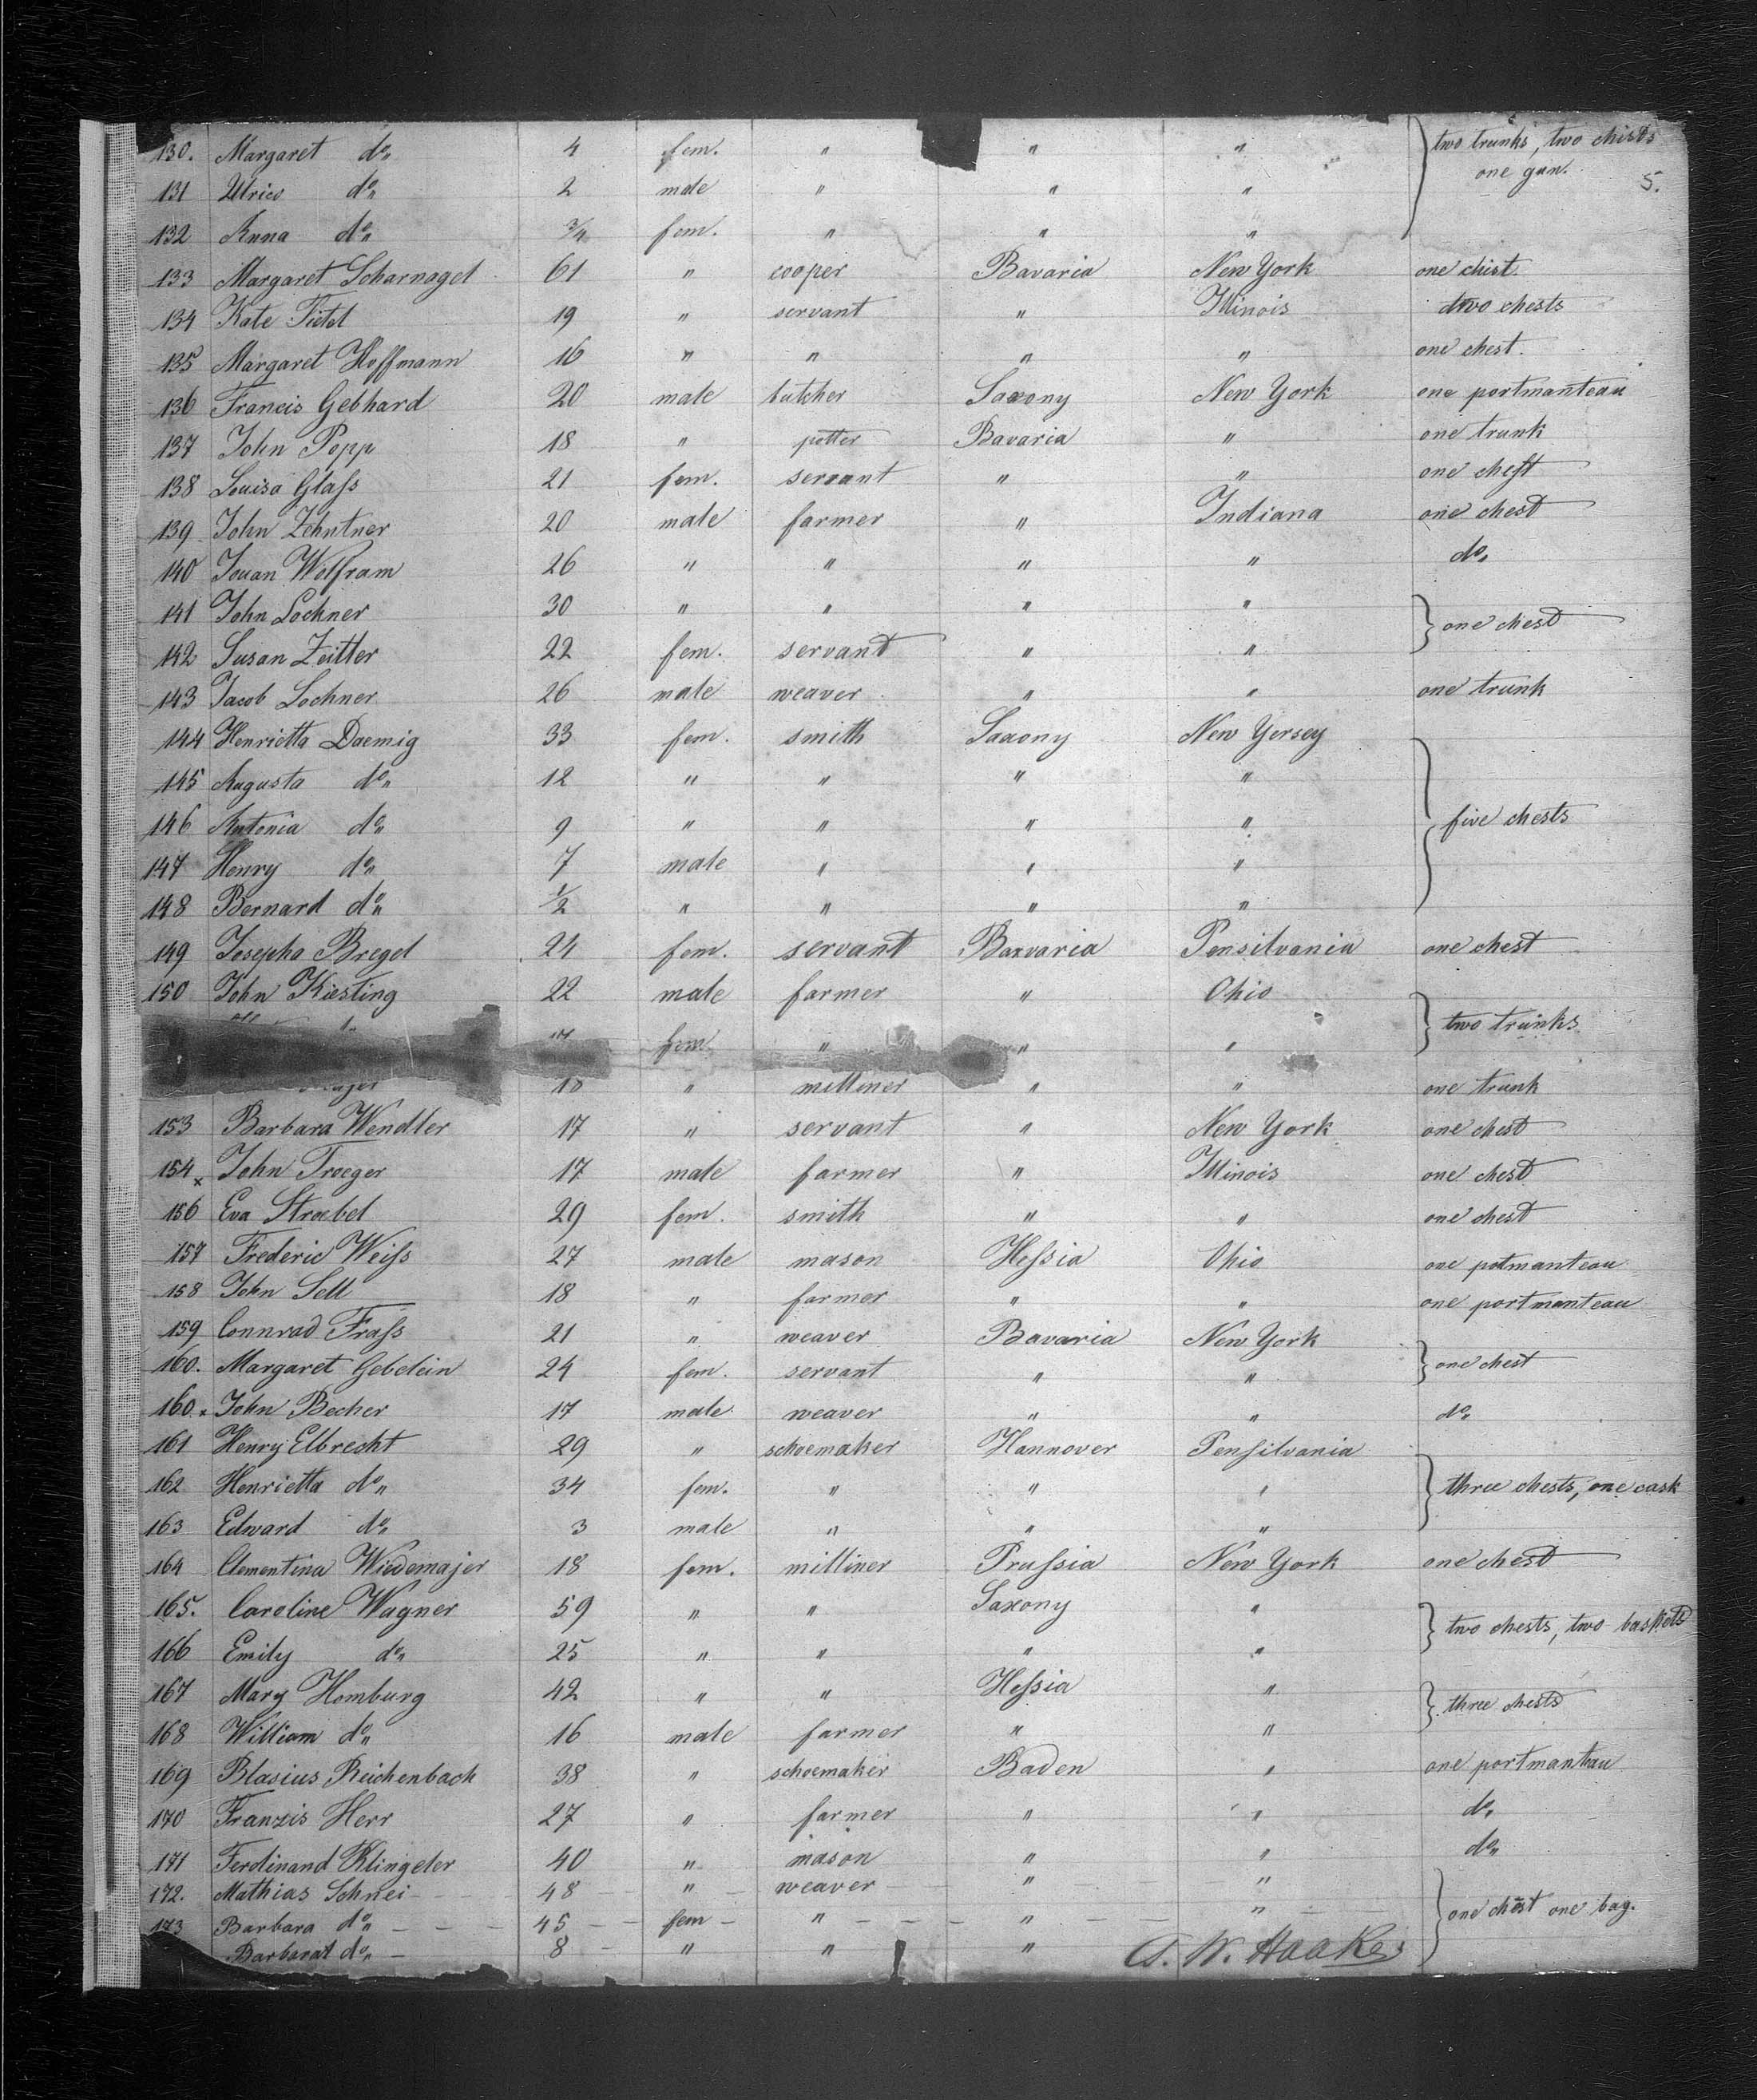 130. Margaret do„ 4 fem. " " " two trunks, two chests
one gun. 5.
131 Ulrico do„ 2 male " " "
132 Anna do„ 3/4 fem. " " "
133 Margaret Scharnagel 61 " cooper Bavaria New York one chist
134 Kate Tietel 19 " servant " Illinois two chests
135 Margaret Hoffmann 16 " " " " one chest.
136 Francis Gebhard 20 male butcher Saxony New York one portmanteau
137 John Popp 18 " potter Bavaria " one trunk
138 Louisa Glaſs 21 fem. servant " " one cheſt
139 John Zehntner 20 male farmer " Indiana one chest
140 Jouan Wolfram 26 " " " " do„
141 John Lochner 30 " " " "
one chest
142 Susan Zeitler 22 fem. servant " "
143 Jacob Lochner 26 male weaver " " one trunk
144 Henrietta Daemig 33 fem. smith Saxony New Yersey
145 Augusta do„ 12 " " " "
146 Antonia do„ 9 " " " " five chests
147 Henry do„ 7 male " " "
148 Bernard do„ 1/2 " " " "
149 Josepha Bregel 24 fem. servant Baxvaria Pensilvania one chest
150 John Kiesting 22 male farmer " Ohio
two trunks
fem " " "
18 " milliner " " one trunk
153 Barbara Wendler 17 " servant " New York one chest
154 x John Troeger 17 male farmer " Illinois one chest
156 Eva Stroebel 29 fem. smith " " one chest
157 Frederic Weiſs 27 male mason Heſsia Ohio one potmanteau
158 John Sell 18 " farmer " " one portmanteau
159 Connrad Fraſs 21 " weaver Bavaria New York
one chest
160. Margaret Gebelein 24 fem. servant " "
160 x John Becher 17 male weaver " " do„
161 Henry Elbrecht 29 " schoemaker Hannover Penſilvania
162 Henrietta do„ 34 fem. " " " three chests, one cask
163 Edward do„ 3 male " " "
164 Clementina Wiedemajer 18 fem. milliner Pruſsia New York one chest
165. Caroline Wagner 59 " " Saxony "
two chests, two baskets
166 Emily do„ 25 " " " "
167 Mary Homburg 42 " " Heſsia "
three chests
168 William do„ 16 male farmer " "
169 Blasius Reichenbach 38 " schoemaker Baden " one portmanteau
170 Franzis Herr 27 " farmer " " do„
171 Ferdinand Klingeler 40 " mason " " do„
172. Mathias Schnei 48 " weaver " "
one chest one bag.
173 Barbara do„ 45 fem " " "
Barbarat do„ 8 " " "